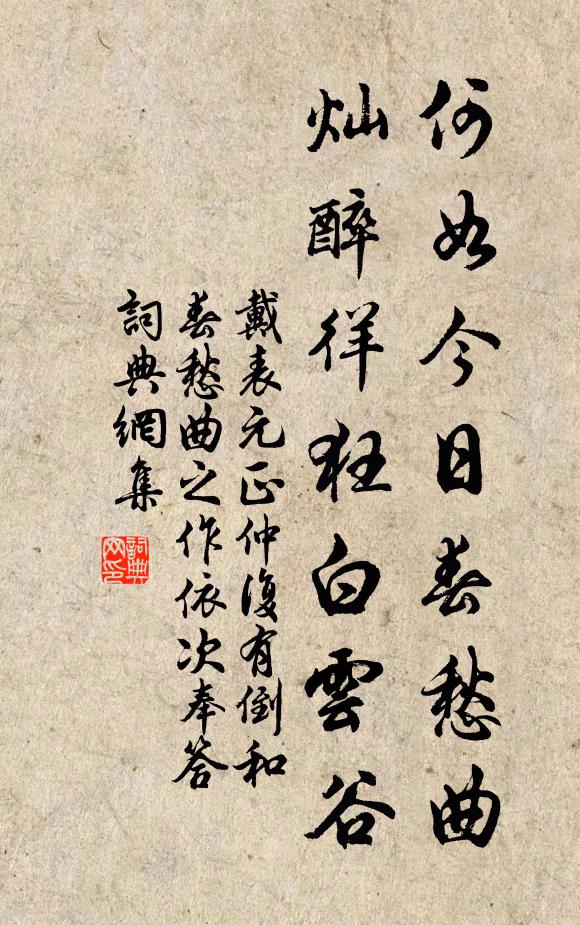 何如今日春愁曲
灿醉徉狂白雲谷
戴表元正仲復有倒和
春愁曲之作依次奉答
詞典網集
詞典网印